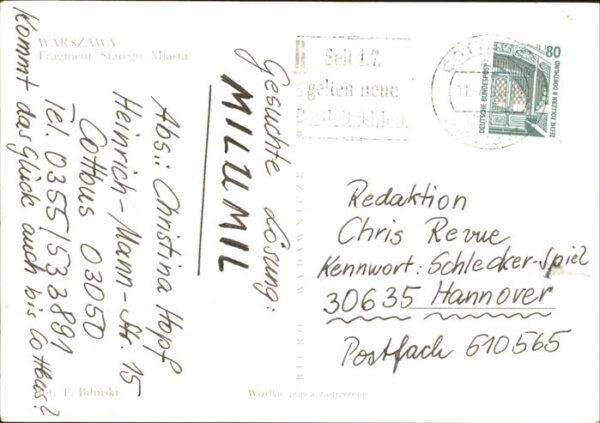 WARSZAWA
Fragment Starego Miasta
Gesuchte Lösung:
MILUMIL
Abs.: Christina Hopf
Heinrich-Mann-Str. 15
Cottbus 03050
Tel. 0355/533891
Kommt das Glück auch bis Cottbus?
Seit 1.7.
gelten neue
80
DEUTSCHE BUNDESPOST
ZECHE ZOLLERN II DORTMUND
Redaktion
Chris Revue
Kennwort: Schlecker-Spiel
30635 Hannover
Postfach 610565
BIURO WYDAWNICZE
T. Biliński
Wszelkie prawa zastrzeżone